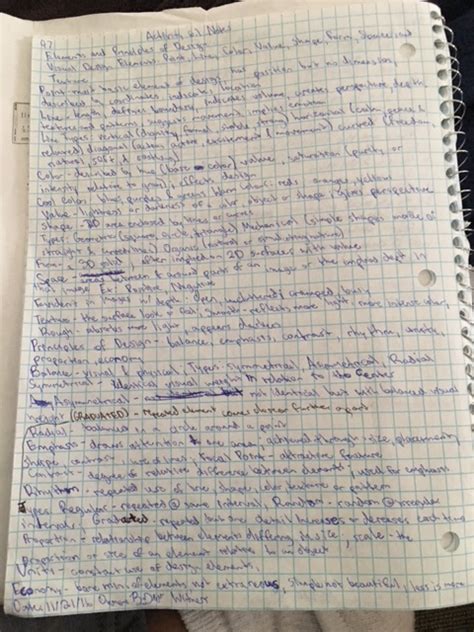 Activity 2.1 Notes
Elements and Principles of Design
Visual Design Elements: Point, Line, Color, Value, Shape, Form, Space, and
Texture
Point- most basic element of design, has position but no dimension,
described by coordinate, indicates location
Line- length, defines boundary, indicates volume, creates perspective, depth,
texture and pattern, suggests movement, implies emotion
Line Types: Vertical (dignity, formal, stable, strong) horizontal (calm, peace &
relaxed) diagonal (action, active, excitement & movement) curved (freedom,
natural, soft &
Color- defined by hue (base color) value, saturation (purity or
intensity relative to gray), effects design
Cool color: blue, purple, green. Warm color: reds, oranges, yellows
Value- lightness or darkness of color, object or shape, gives perspective
Shape- 2D area enclosed by lines or curves
Types: Geometric (square, circle, triangle) Mechanical (simple shapes made of
straight & Organic (natural or
Form- 3D often implied on 2D surfaces with value
Space- area between & around parts of an image or the implied dept in
image Ex: Positive, Negative
Evident in images w/ depth. Open, uncluttered, cramped, busy
Texture- the surface look or feel, smooth- reflects more light, more intense color,
Rough- absorbs more light, appears darker
Principles of Design- balance, emphasis, contrast, rhythm,
proportion, economy
Balance- visual & physical. Types- symmetrical, Asymmetrical, Radial
Symmetrical- Identical visual in relation to center
Asymmetrical- not identical but still balanced visual
weight (GRADUATED)- repeated element comes closer or further apart
Radial- balanced in a circle around a point
Emphasis- draws attention to one area, achieved through size, placement,
shape, contrast, use of lines. Focal Point- attractive feature
Contrast- degree of relative difference between elements, used for emphasis
Rhythm- repeated use of line, shape, color texture or pattern
Types: Regular- repeated @ same interval, Random- random @ irregular
intervals, Gradated- repeated but one detail increases or decreases each time
Proportion- relationship between elements differing in size, scale- the
proportion or size of an element relative to an object
Unity- constant use of design elements,
Economy- bare min. of elements, not extraneous, simple not beautiful, less is more
Date: 11/21/16